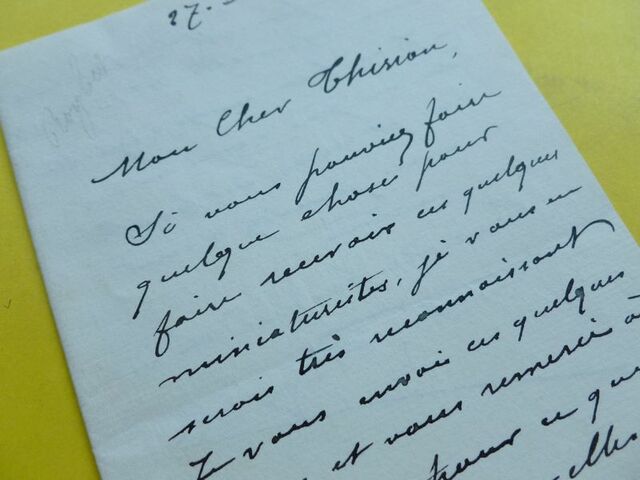 27.
Mon Cher Thirion,
Si vous pouviez faire
quelque chose pour
faire recevoir ces quelques
miniaturistes, je vous en
serais très reconnaissant
Je vous envoie ces quelques
et vous remercie à
pour ce que
elles